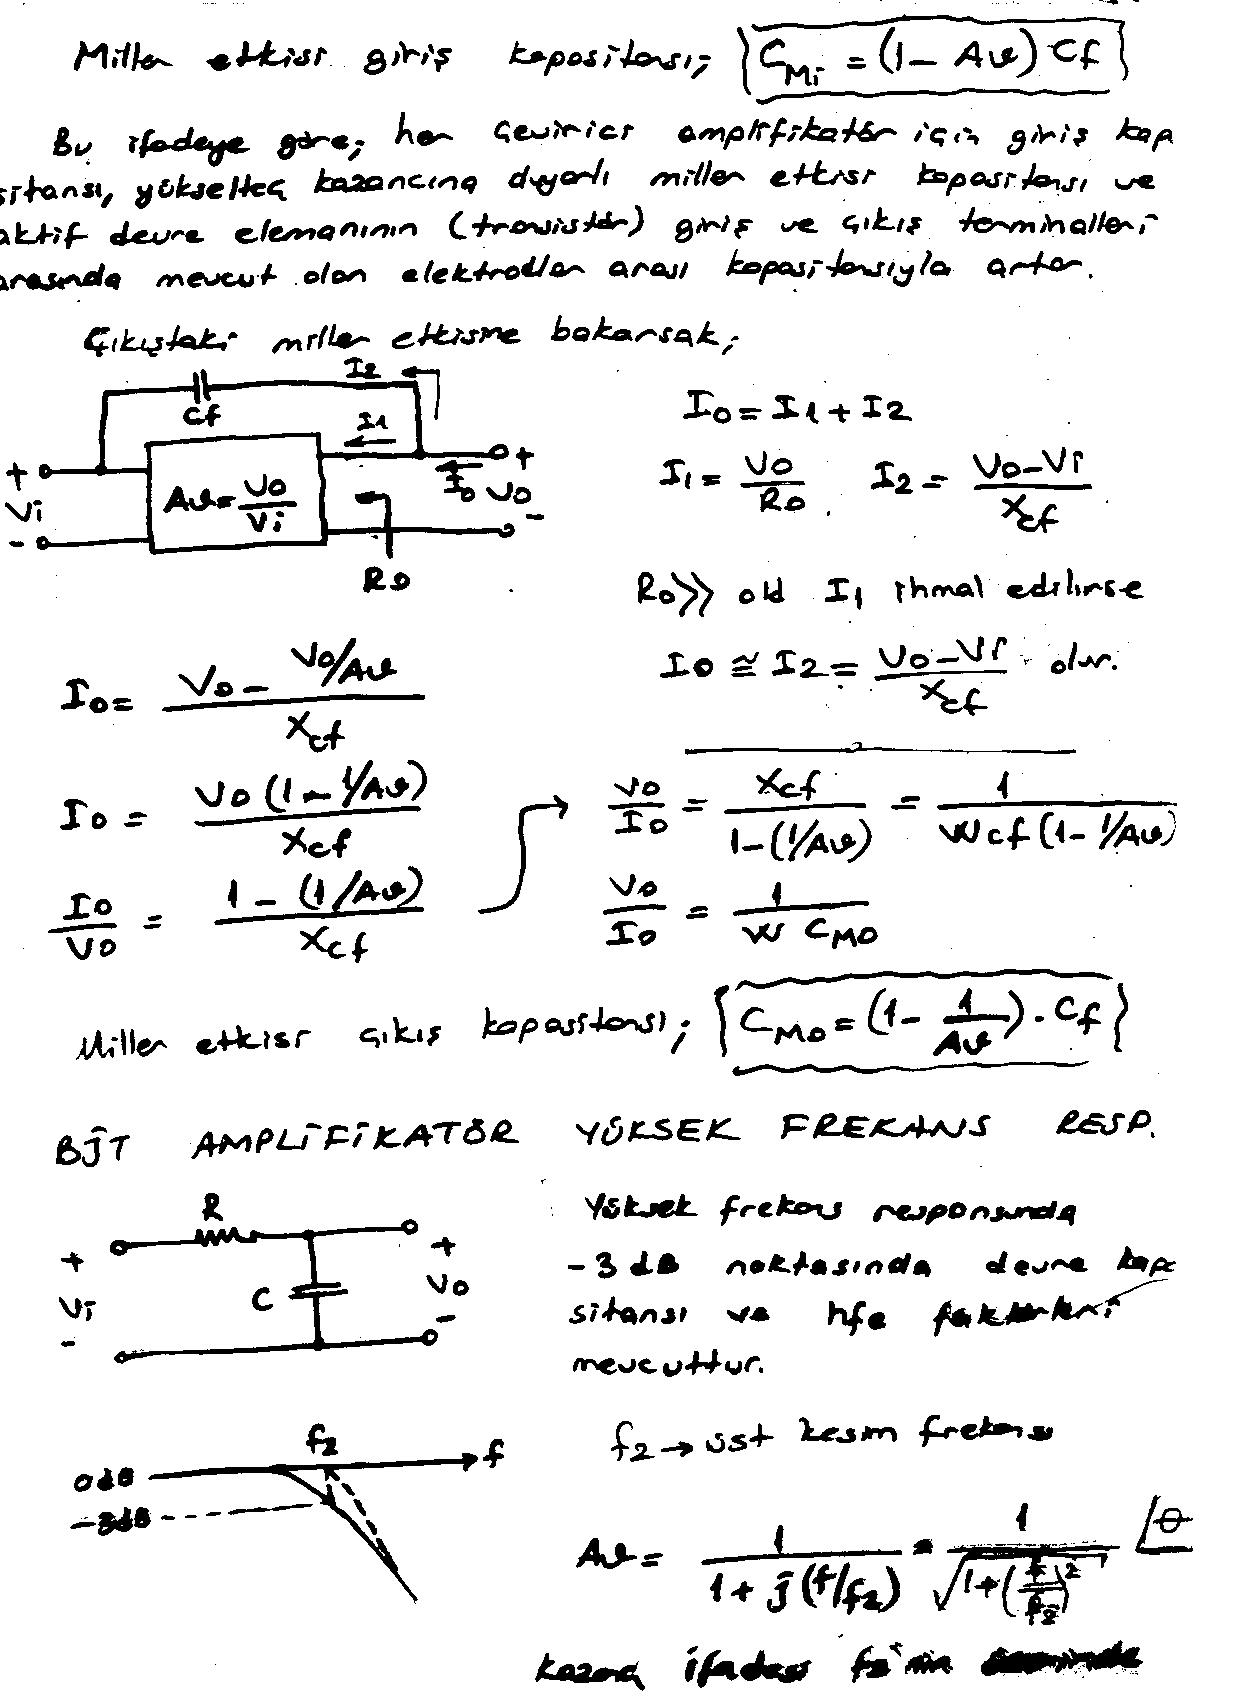 Miller etkisi giriş kapasitansı; { C_Mi = (1 - Av) · Cf }
Bu ifadeye göre; her çevirici amplifikatör için giriş kap
sitansı, yükselteç kazancına duyarlı miller etkisi kapasitansı ve
aktif devre elemanının (transistör) giriş ve çıkış terminalleri
arasında mevcut olan elektrodlar arası kapasitansıyla artar.
Çıkıştaki miller etkisine bakarsak;
Cf I2 I1 Io
+ Vi - Av = Vo/Vi + Vo -
Ro
Io = I1 + I2
I1 = Vo/Ro . I2 = (Vo - Vi)/Xcf
Ro>> old I1 ihmal edilirse
Io ≅ I2 = (Vo - Vi)/Xcf olur.
Io = (Vo - Vo/Av)/Xcf
Io = Vo (1 - 1/Av)/Xcf
Io/Vo = (1 - (1/Av))/Xcf
Vo/Io = Xcf/(1 - (1/Av)) = 1/(W Cf (1 - 1/Av))
Vo/Io = 1/(W C_Mo)
Miller etkisi çıkış kapasitansı; { C_Mo = (1 - 1/Av) . Cf }
BJT AMPLİFİKATÖR YÜKSEK FREKANS RESP.
R
+ Vi - C + Vo -
Yüksek frekans responsunda
-3 dB noktasında devre kapa
sitansı ve hfe faktörleri
mevcuttur.
f2 → üst kesim frekansı
0dB f2 f
-3dB
Av = 1/(1 + j (f/f2)) = 1/√(1 + (f/f2)²) ∠θ
kazanç ifadesi f2'nin